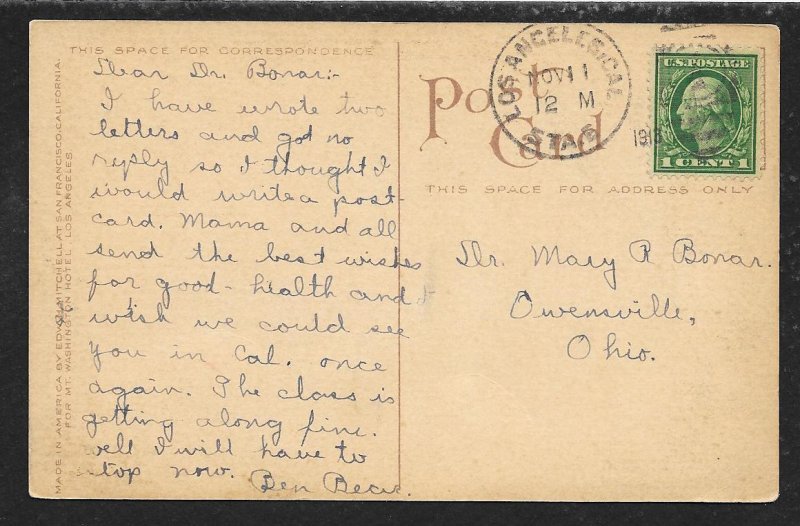 THIS SPACE FOR CORRESPONDENCE
Dear Dr. Bonar:-
I have wrote two
letters and got no
reply so I thought I
would write a post-
card. Mama and all
send the best wishes
for good-health and I
wish we could see
you in Cal. once
again. The class is
getting along fine.
well I will have to
stop now. Ben
MADE IN AMERICA BY EDW. H. MITCHELL AT SAN FRANCISCO, CALIFORNIA.
FOR MT. WASHINGTON HOTEL, LOS ANGELES
Post
Card
LOS ANGELES, CAL.
NOV 11
12 M
STA
U.S. POSTAGE
1 CENT 1
THIS SPACE FOR ADDRESS ONLY
Dr. Mary R Bonar.
Owensville,
Ohio.